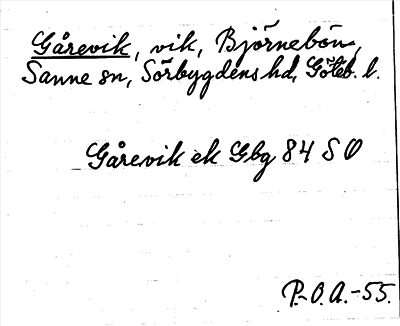 Gårevik, vik, Björnebön,
Sanne sn, Sörbygdens hd, Göteb. l.
Gårevik ek Gbg 84 S O
P.-O.A.-55.